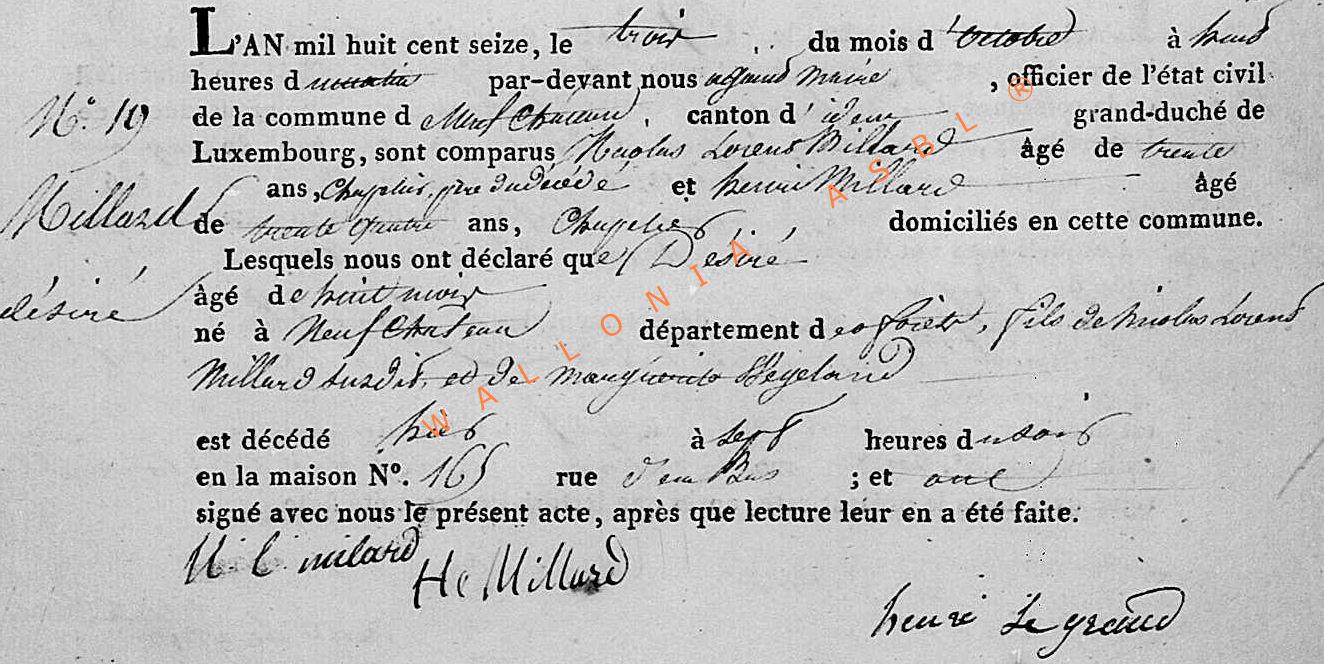 L'AN mil huit cent seize, le trois du mois d'octobre à huit
heures du matin par-devant nous Maire, officier de l'état civil
N°. 19
de la commune de Neufchateau, canton d'idem grand-duché de
Luxembourg, sont comparus Nicolas Lorent Millard âgé de trente
ans, Chapelier, père du décédé et henri Millard âgé
Millard
de trente quatre ans, Chapelier domiciliés en cette commune.
Lesquels nous ont déclaré que Désiré
désiré
âgé de huit mois
né à Neufchateau département des forêts, fils de Nicolas Lorent
Millard susdit, et de marguerite
est décédé hier à sept heures du soir
en la maison N°. 165 rue d'en Bas ; et ont
signé avec nous le présent acte, après que lecture leur en a été faite.
N. l. milard
He Millard
henri Le grand
WALLONIA ASBL ®